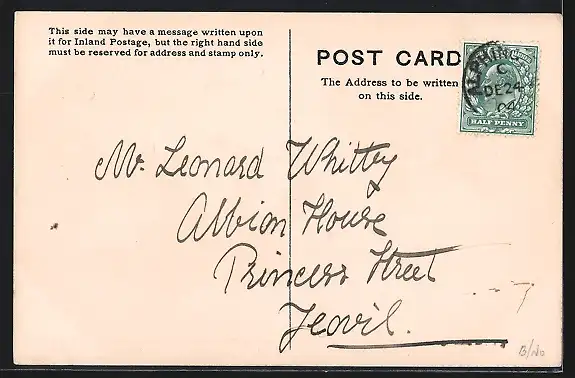 This side may have a message written upon
it for Inland Postage, but the right hand side
must be reserved for address and stamp only.
POST CARD
The Address to be written
on this side.
C
DE 24
04
HALF PENNY
Mr. Leonard Whittey
Albion House
Princess Street
Yeovil.
B/No